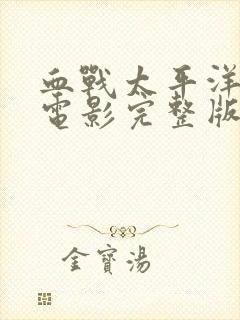 血戰太平洋
電影完整版
金寶湯